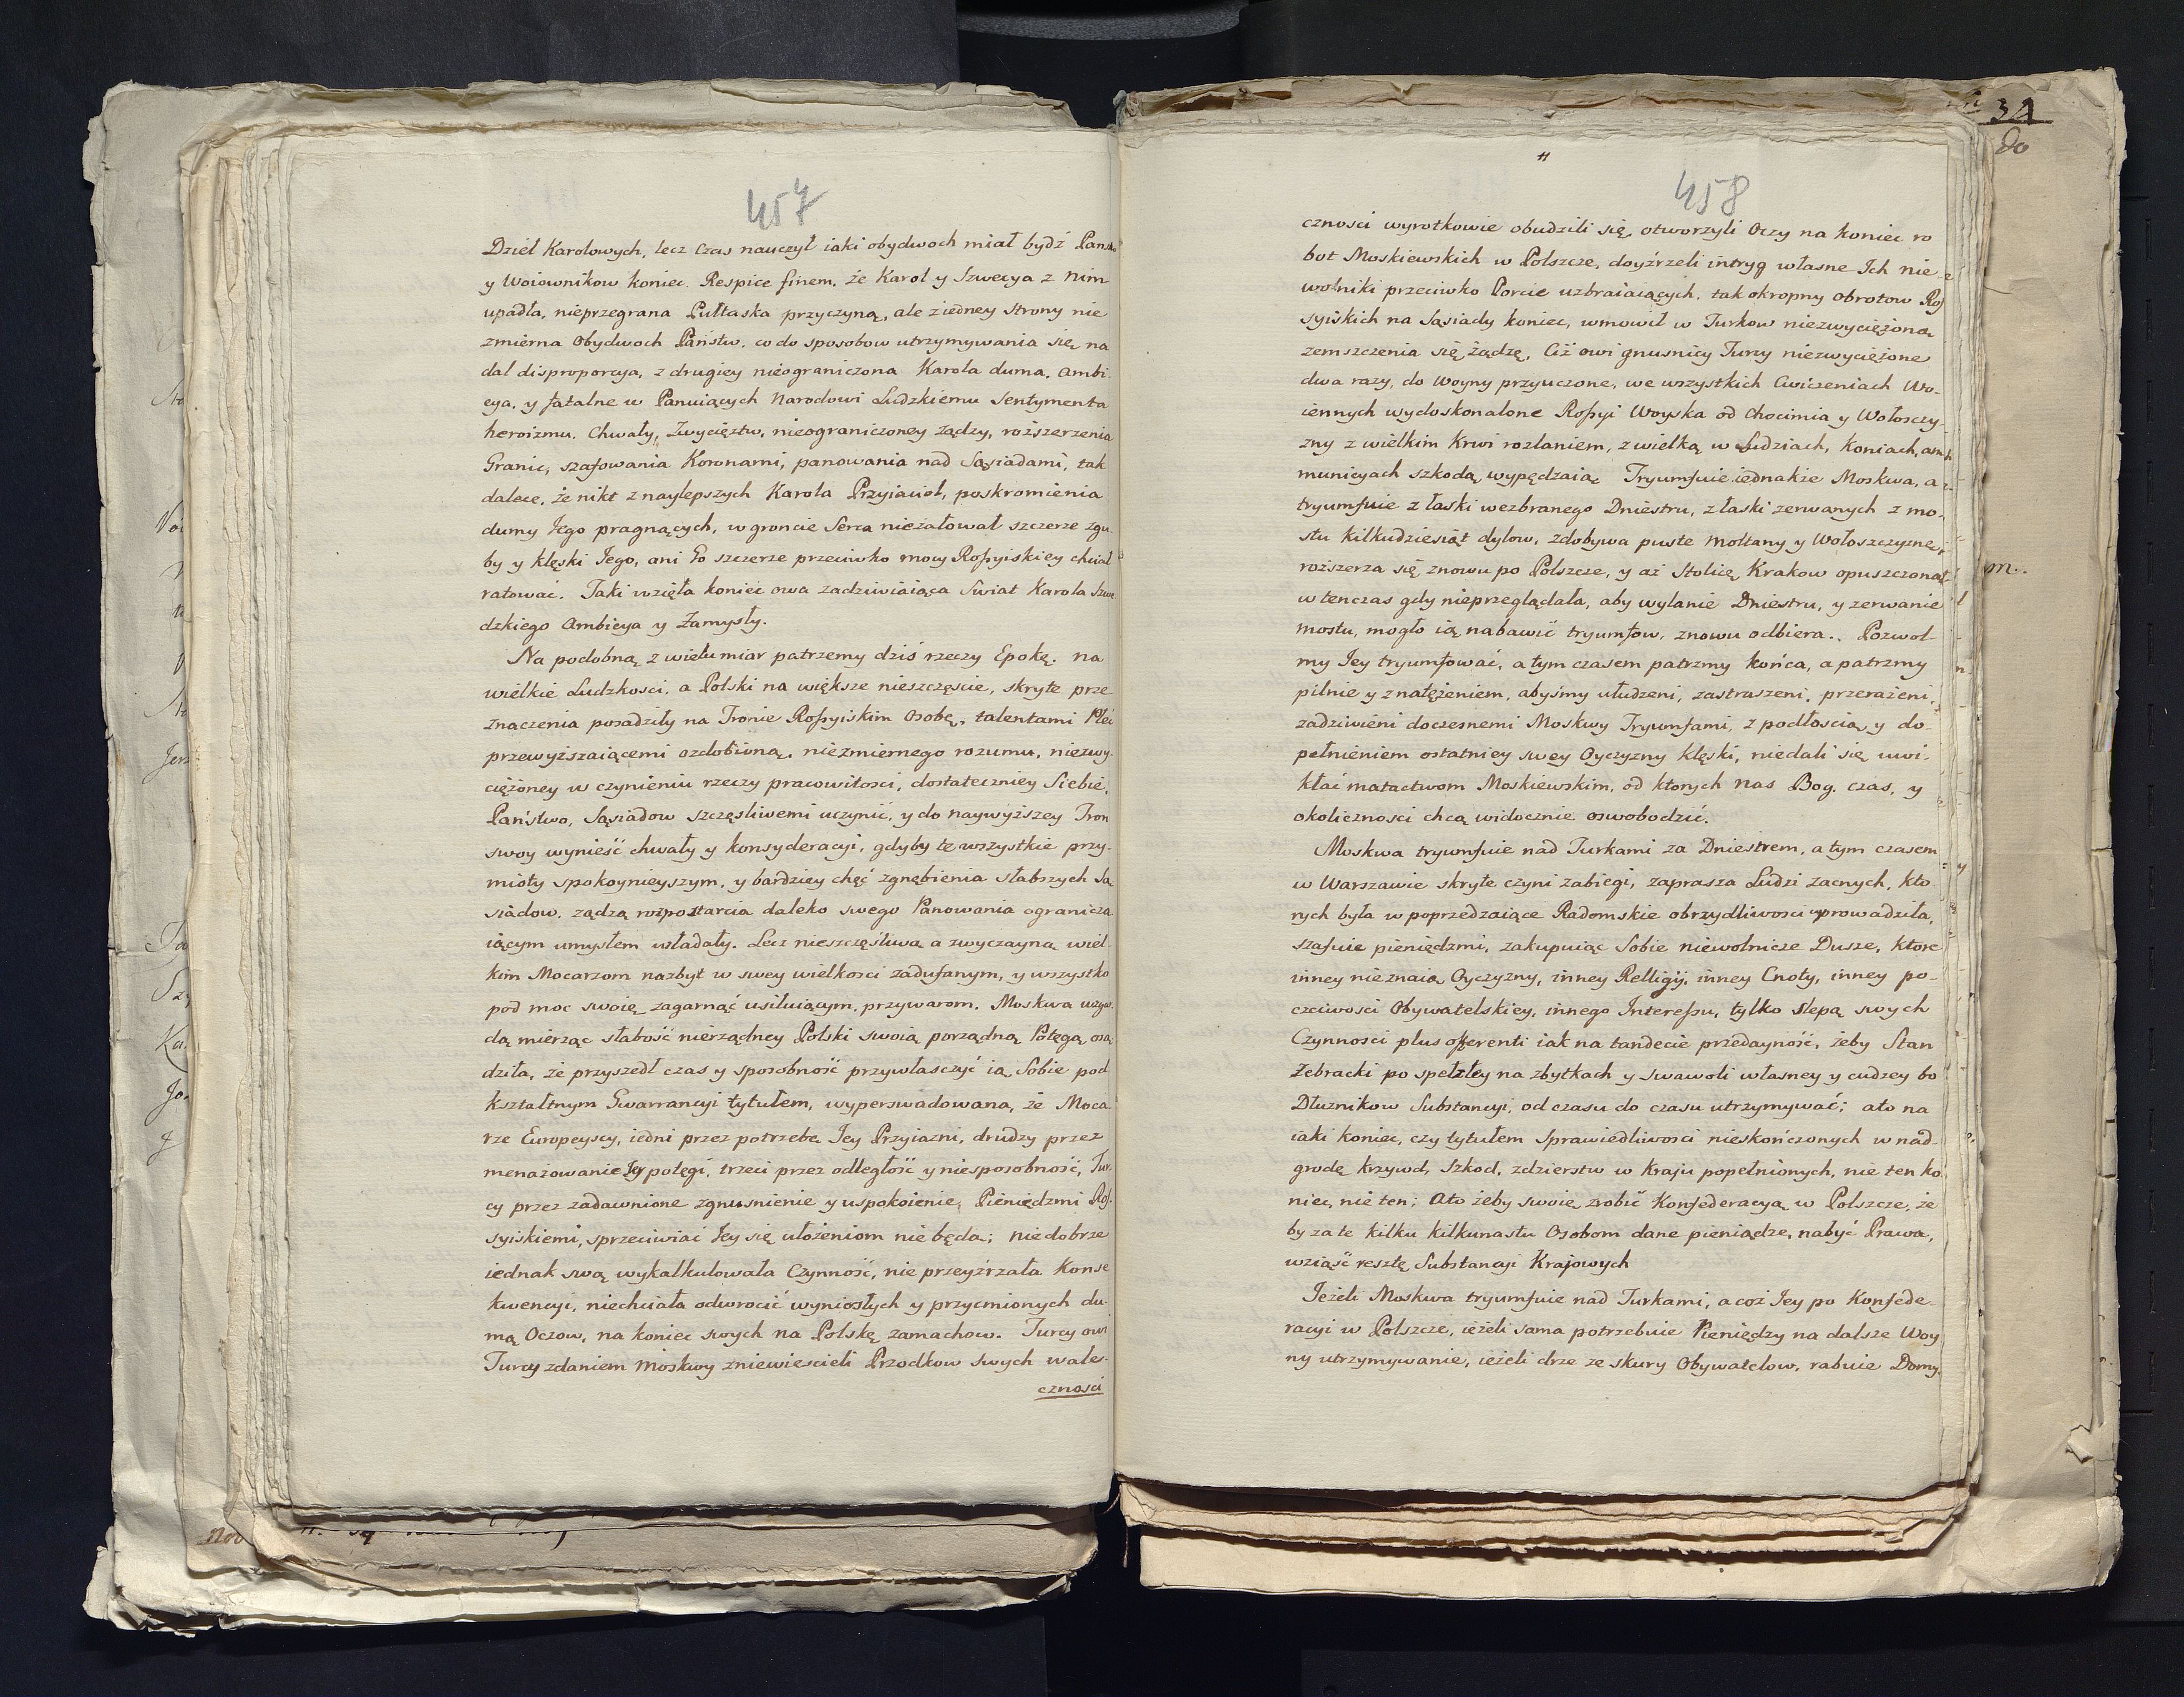 457
Dzieł Karolowych, lecz Czas nauczył iaki obydwoch miał bydź
y Woiownikow koniec. Respice finem, że Karol y Szwecya z Nim
upadła, nieprzegrana Pułtaska przyczyną, ale z iedney strony nie
zmierna Obydwoch Państw, co do sposobow utrzymywania się na
dal disproporcya, z drugiey nieograniczona Karola duma, ambi
cya, y fatalne w Panuiących Narodowi Ludzkiemu Sentymenta
heroizmu, Chwały, Zwycięztw, nieograniczoney żądzy, rozszerzenia
Granic, szafowania Koronami, panowania nad Sąsiadami, tak
dalece, że nikt z naylepszych Karola Przyiacioł, poskromienia
dumy Jego pragnących, w groncie Serca nieżałował szczerze zgu
by y klęski Jego, ani Go szczerze przeciwko mocy Rossyiskiey chciał
ratować. Taki wzięła koniec owa zadziwiaiąca Swiat Karola Szwe
dzkiego Ambicya y Zamysły.
Na podobną z wielu miar patrzemy dziś rzeczy Epokę. na
wielkie Ludzkosci, a Polski na większe nieszczęscie, skryte prze
znaczenia posadziły na Tronie Rossyiskim Osobę, talentami Płeć
przewyższaiącemi ozdobioną, niezmiernego rozumu, niezwy
ciężoney w czynieniu rzeczy pracowitosci, dostateczniey Siebie,
Państwo, Sąsiadow szczęsliwemi uczynić, y do naywyższey Tron
swoy wynieść chwały y konsyderacyi, gdyby te wszystkie przy-
mioty spokoynieyszym, y bardziey chęć zgnębienia słabszych Są
siadow, ządzą rozpostarcia daleko swego Panowania ogranicza
iącym umysłem władały. Lecz nieszczęśliwą a zwyczayną wiel-
kim Mocarzom nazbyt w swey wielkosci zadufanym, y wszystko
pod moc swoię zagarnąć usiłuiącym, przywarom, Moskwa wzgar
dą mierząc słabość nierządney Polski swoią porządną Potęgą, osą
dziła, że przyszedł czas y sposobność przywłasczyć ią Sobie pod
kształtnym Gwarrancyi tytułem, wyperswadowana, że Moca
rze Europeyscy, iedni przez potrzebę Jey Przyiazni, drudzy przez
menażowanie Jey potęgi, trzeci przez odległość y niesposobność, Tur
cy przez zadawnione zgnusnienie y uspokoienie, Pieniędzmi Ros
syiskiemi, sprzeciwiać Jey się ułożeniom nie będą; niedobrze
iednak swą wykalkulowała Czynność, nie przeyźrzała Konse
kwencyi, niechciała odwrocić wyniosłych y przycmionych du
mą Oczow, na koniec swych na Polskę zamachow. Turcy owi
Turcy zdaniem Moskwy zniewiescieli Przodkow swych wale-
czności
34
80
458
cznosci wyrotkowie obudzili się, otworzyli Oczy na koniec ro
bot Moskiewskich w Polszcze, doyźrzeli intryg własne Ich nie
wolniki przeciwko Porcie uzbraiaiących. tak okropny obrotow Ros
syiskich na Sąsiady koniec, wmowił w Turkow niezwyciężoną
zemszczenia się żądzę, Ciż owi gnusnicy Turcy niezwyciężone
dwa razy, do Woyny przyuczone, we wszystkich Cwiczeniach Wo-
iennych wydoskonalone Rossyi Woyska od Chocimia y Wołosczy-
zny z wielkim Krwi rozlaniem, z wielką w Ludziach, Koniach, am
municyach szkodą, wypędzaią. Tryumfuie iednakże Moskwa, a
tryumfuie z łaski wezbranego Dniestru, z łaski zerwanych z mo-
stu kilkudziesiąt dylow, zdobywa puste Mołtany y Wołoszczyznę,
rozszerza się znowu po Polszcze, y aż Stolicę Krakow opuszczoną
w tenczas gdy nieprzeglądała, aby wylanie Dniestru, y zerwanie
mostu, mogło ią nabawić tryumfow, znowu odbiera.. Pozwol
my Jey tryumfować, a tym czasem patrzmy końca, a patrzmy
pilnie y z natężeniem, abyśmy ułudzeni, zastraszeni, przerażeni,
zadziwieni doczesnemi Moskwy Tryumfami, z podłoscią y do-
pełnieniem ostatniey swey Oyczyzny klęski, niedali się uwi-
kłać matactwom Moskiewskim, od ktorych nas Bog. czas, y
okolicznosci chcą widocznie oswobodzić.
Moskwa tryumfuie nad Turkami za Dniestrem, a tym czasem
w Warszawie skryte czyni zabiegi, zaprasza Ludzi zacnych, kto
rych była w poprzedzaiące Radomskie obrzydliwosci wprowadziła,
szafuie pieniędzmi, zakupuiąc Sobie niewolnicze Dusze, ktore
inney nieznaią Oyczyzny, inney Relligij, inney Cnoty, inney po-
czciwosci Obywatelskiey, innego Interessu, tylko slepą swych
Czynnosci plus offerenti iak na tandecie przedayność, żeby Stan
Żebracki po spełzłey na zbytkach y swawoli własney y cudzey bo
Dłuznikow Substancyi, od czasu do czasu utrzymywać; ato na
iaki koniec, czy tytułem Sprawiedliwosci nieskończonych w nad-
grodę krzywd, Szkod, zdzierstw w Kraju popełnionych, nie ten ko
niec, nie ten; Ato żeby swoię zrobić Konfederacyą w Polszcze, że
by za te kilku kilkunastu Osobom dane pieniądze, nabyć Prawa,
wziąść resztę Substancyi Krajowych
Jeżeli Moskwa tryumfuie nad Turkami, a coż Jey po Konfede-
racyi w Polszcze, ieżeli sama potrzebuie Pieniędzy na dalsze Woy
ny utrzymywanie, ieżeli drze ze skury Obywatelow, rabuie Domy,